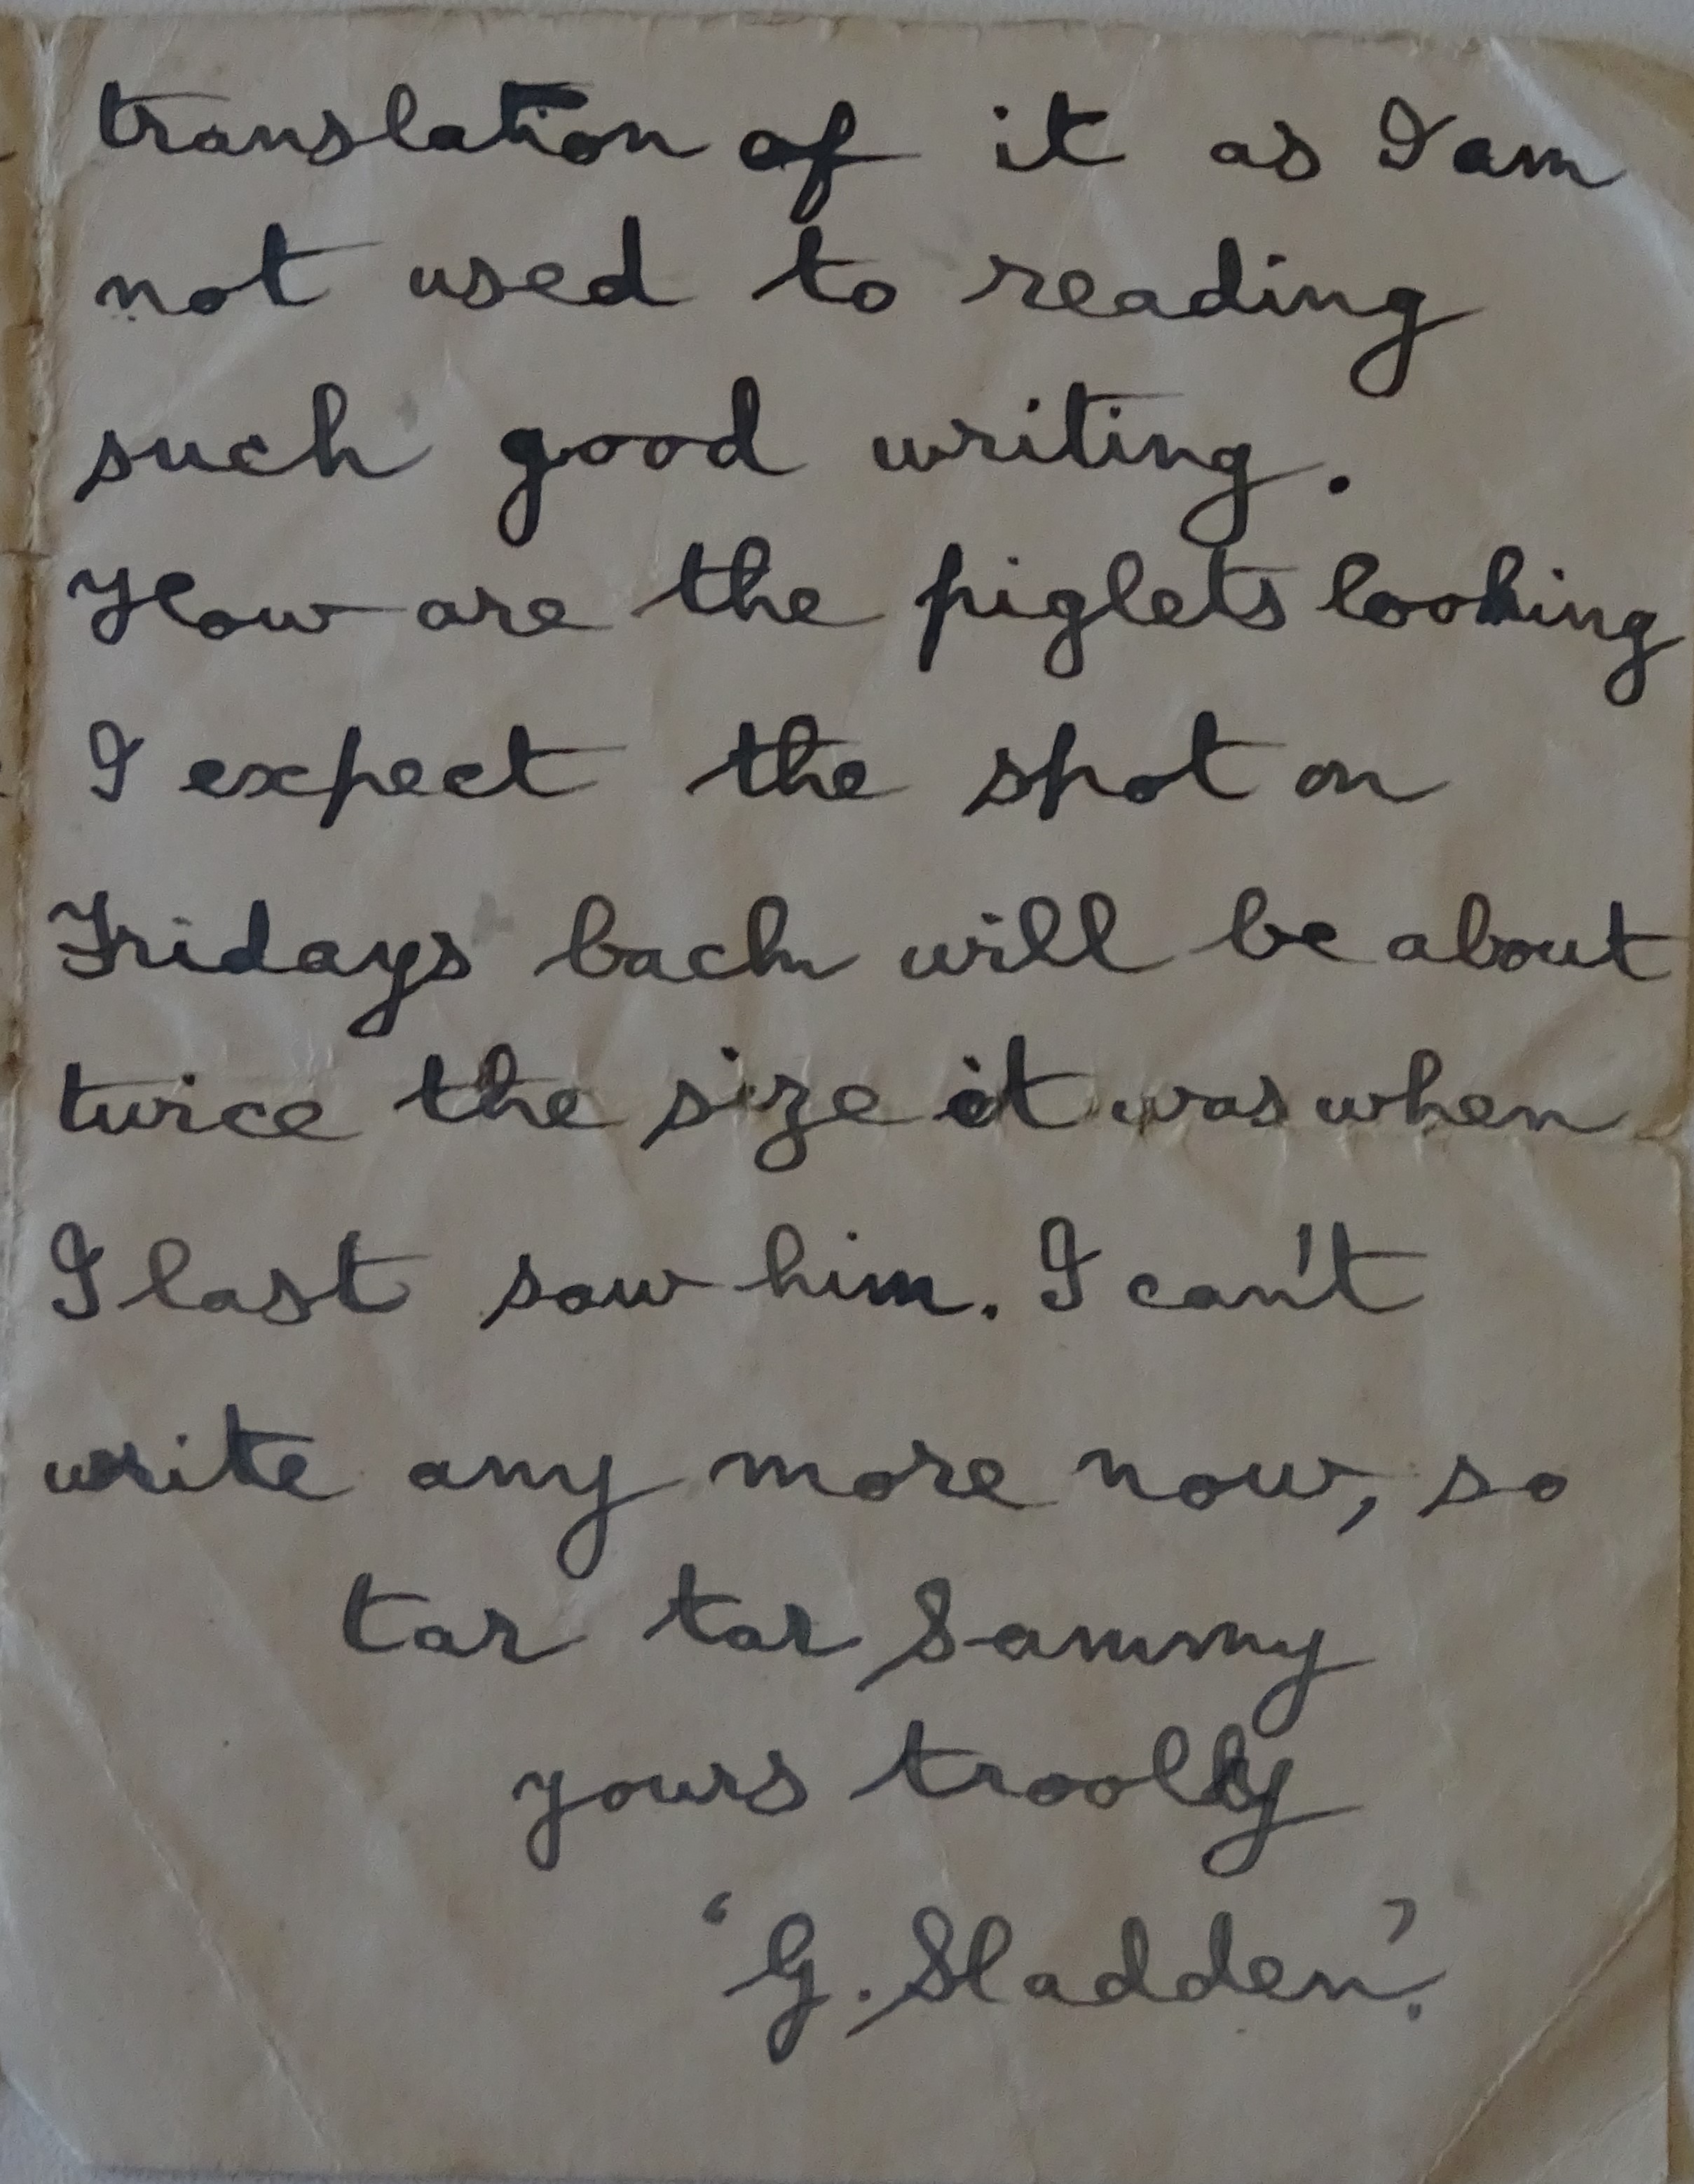 translation of it as I am
not used to reading
such good writing.
How are the piglets looking
I expect the spot on
Fridays back will be about
twice the size it was when
I last saw him. I can't
write any more now, so
tar tar Sammy
yours trooly
'G. Sladden'.